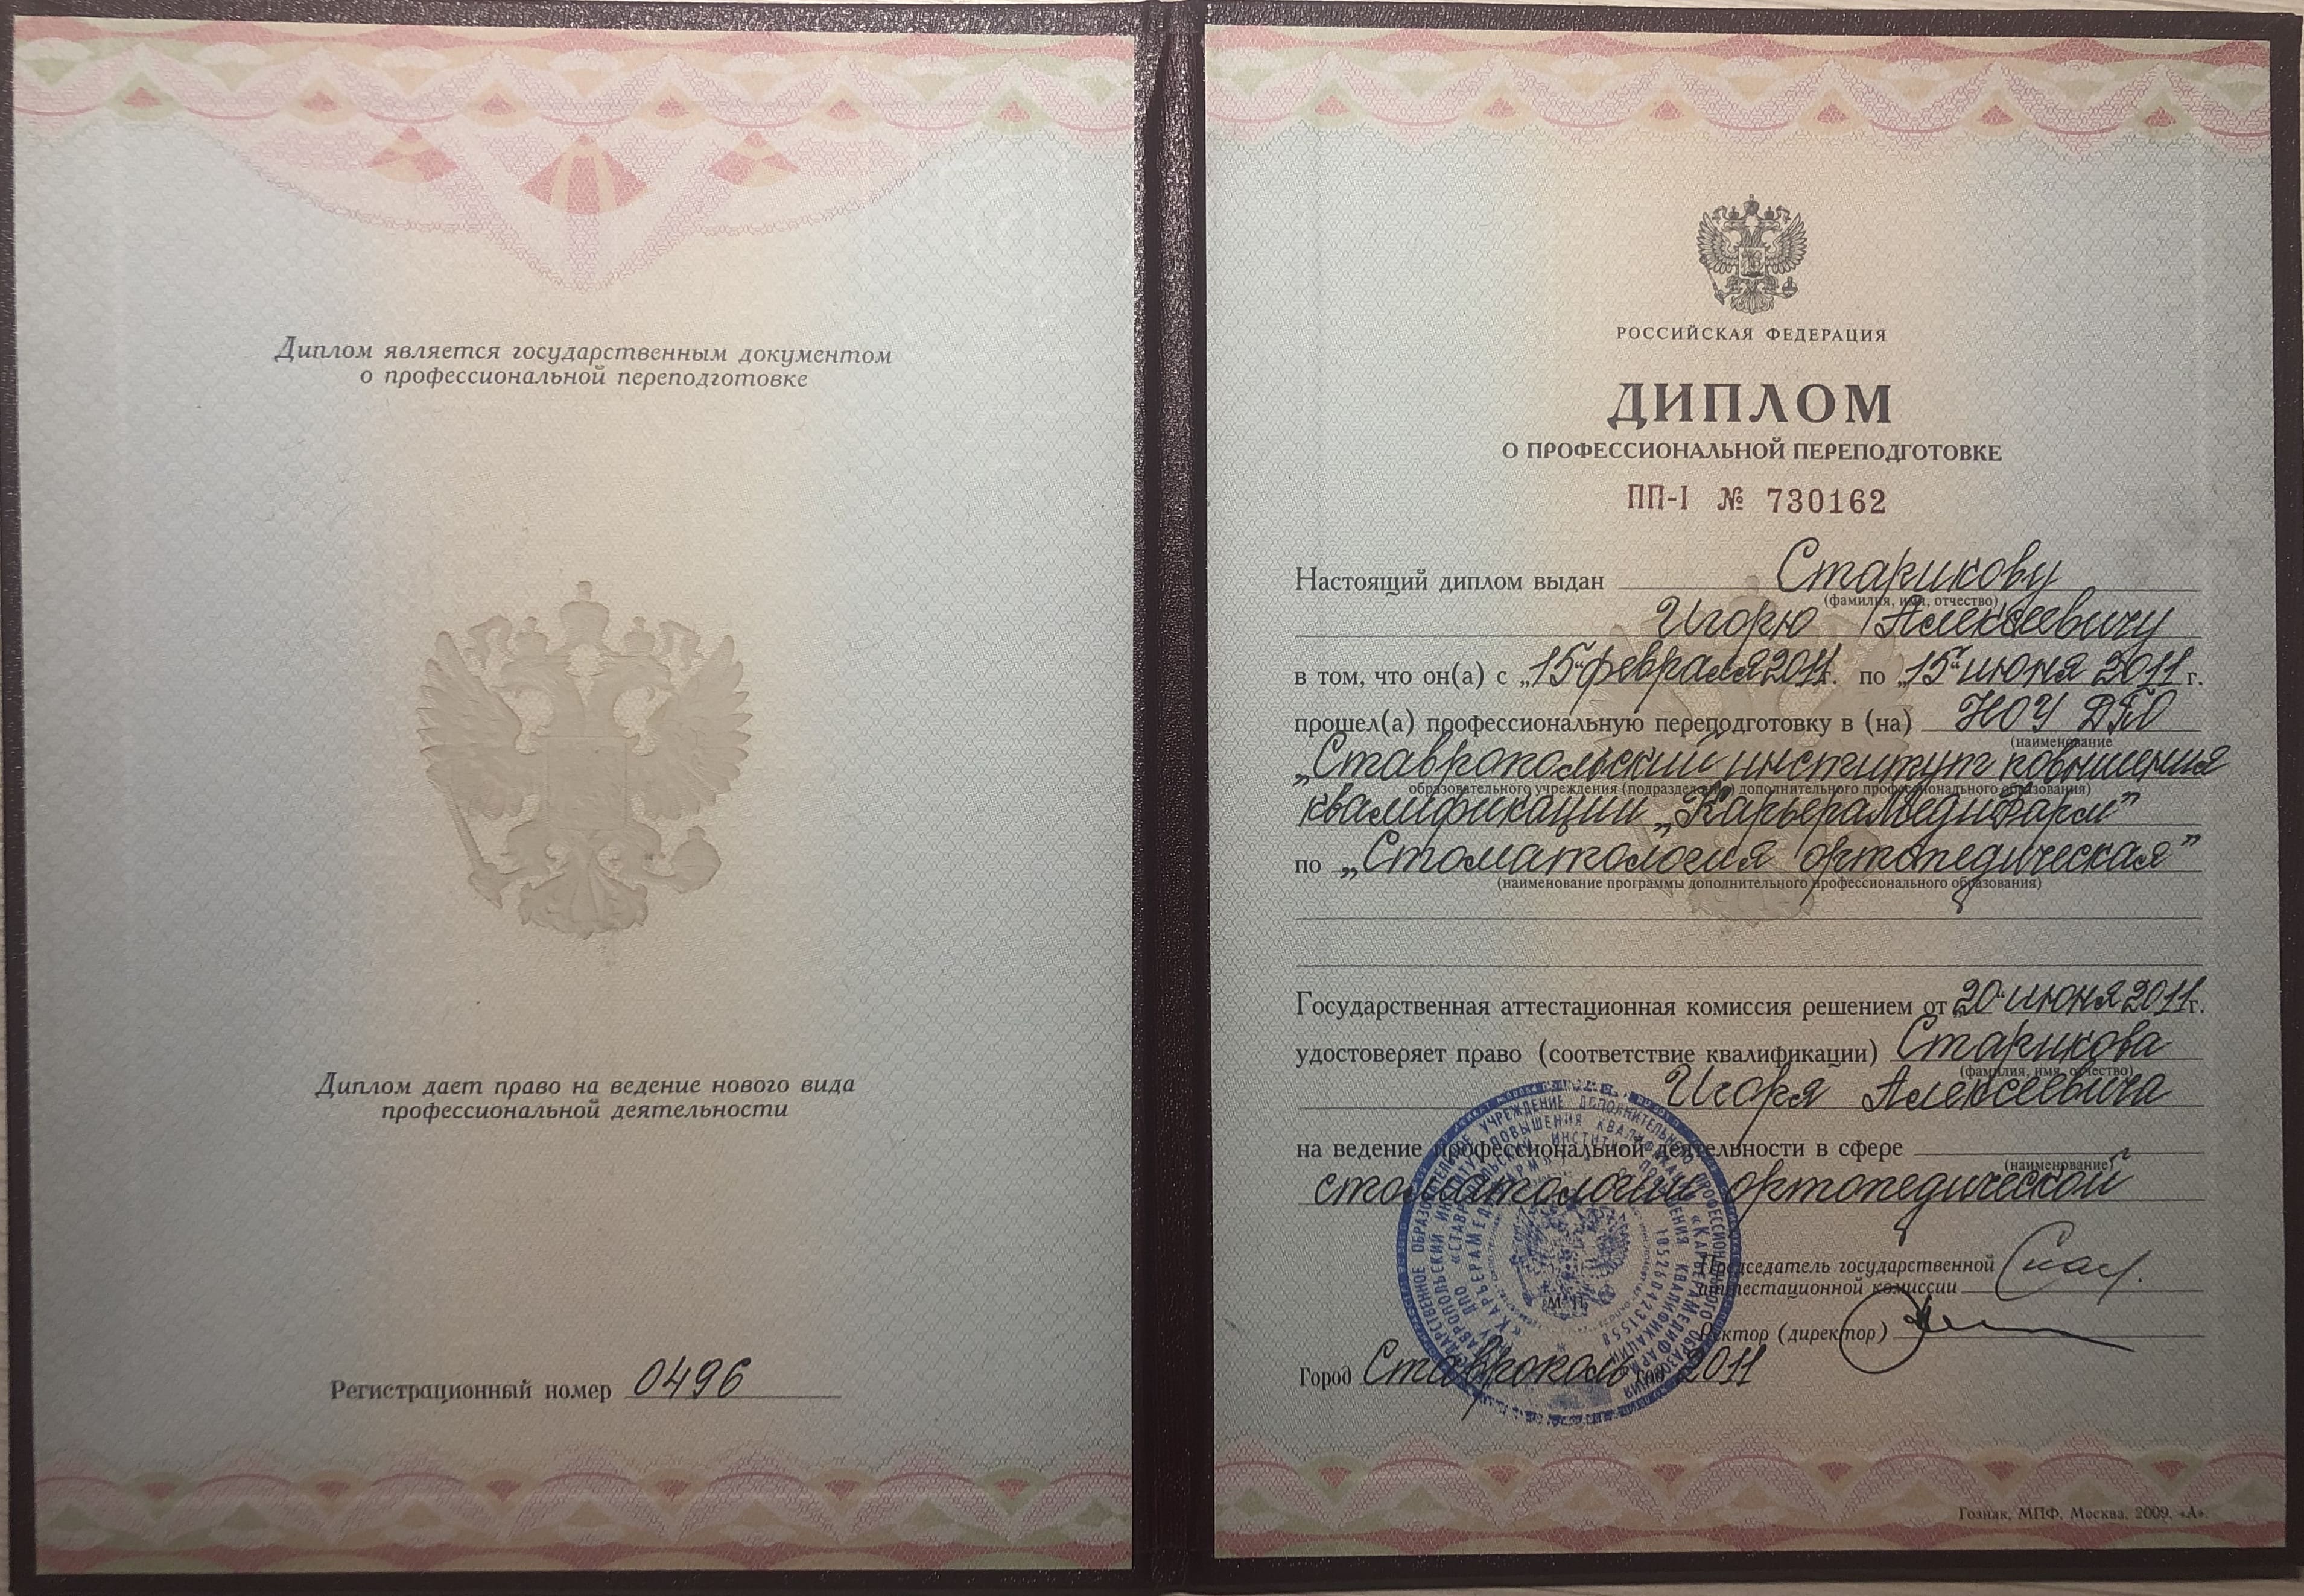 Диплом является государственным документом
о профессиональной переподготовке
Диплом дает право на ведение нового вида
профессиональной деятельности
Регистрационный номер 0496
РОССИЙСКАЯ ФЕДЕРАЦИЯ
ДИПЛОМ
О ПРОФЕССИОНАЛЬНОЙ ПЕРЕПОДГОТОВКЕ
ПП-I № 730162
Настоящий диплом выдан Старикову
(фамилия, имя, отчество)
Игорю Алексеевичу
в том, что он(а) с „15“ февраля 2011г. по „15“ июня 2011 г.
прошел(а) профессиональную переподготовку в (на) НОУ ДПО
(наименование
„Ставропольский институт повышения
образовательного учреждения (подразделения) дополнительного профессионального образования)
квалификации „КарьераМедиФарм”
по „Стоматология ортопедическая”
(наименование программы дополнительного профессионального образования)
Государственная аттестационная комиссия решением от „20“ июня 2011г.
удостоверяет право (соответствие квалификации) Старикова
(фамилия, имя, отчество)
Игоря Алексеевича
на ведение профессиональной деятельности в сфере
(наименование)
стоматологии ортопедической
Председатель государственной
аттестационной комиссии
М.П.
Ректор (директор)
Город Ставрополь год 2011
Гознак, МПФ, Москва, 2009, «А».